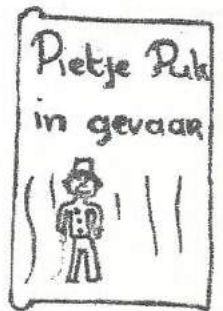 Pietje Puk
in gevaar